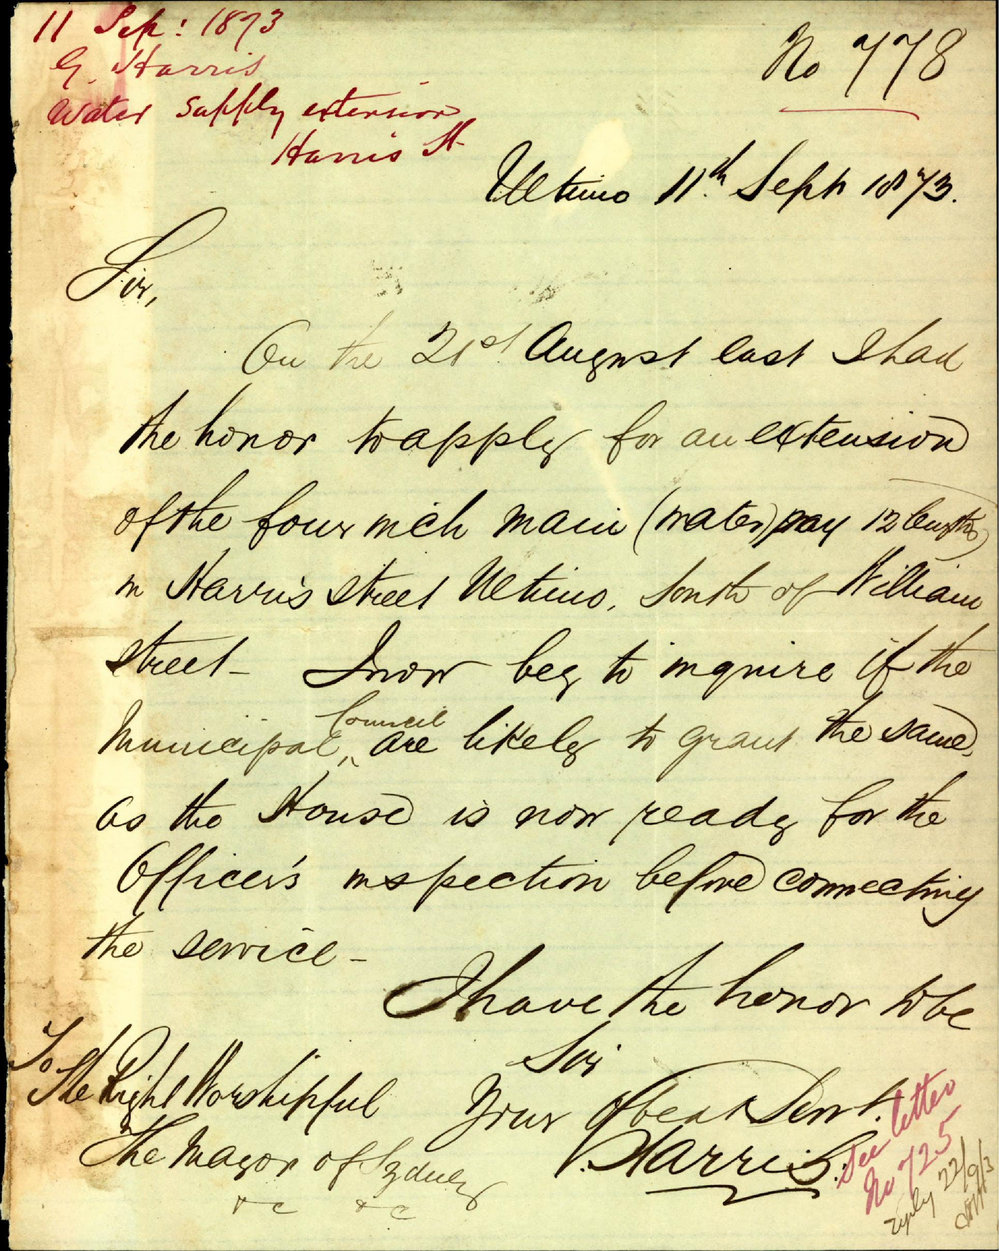 11 Sep: 1873
G. Harris
Water supply extension
Harris St
No 778
Ultimo 11th Sept 1873.
Sir,
On the 21st August last I had
the honor to apply for an extension
of the four inch main (water) say 12 lengths
in Harris street Ultimo, South of William
street - I now beg to inquire if the
Municipal Council are likely to grant the same,
as the House is now ready for the
Officer's inspection before connecting
the service -
I have the honor to be
Sir
Your Obedt Servt.
Harris
To
The Right Worshipful
The Mayor of Sydney
&c &c
See letter
No 725
reply 22/9/3